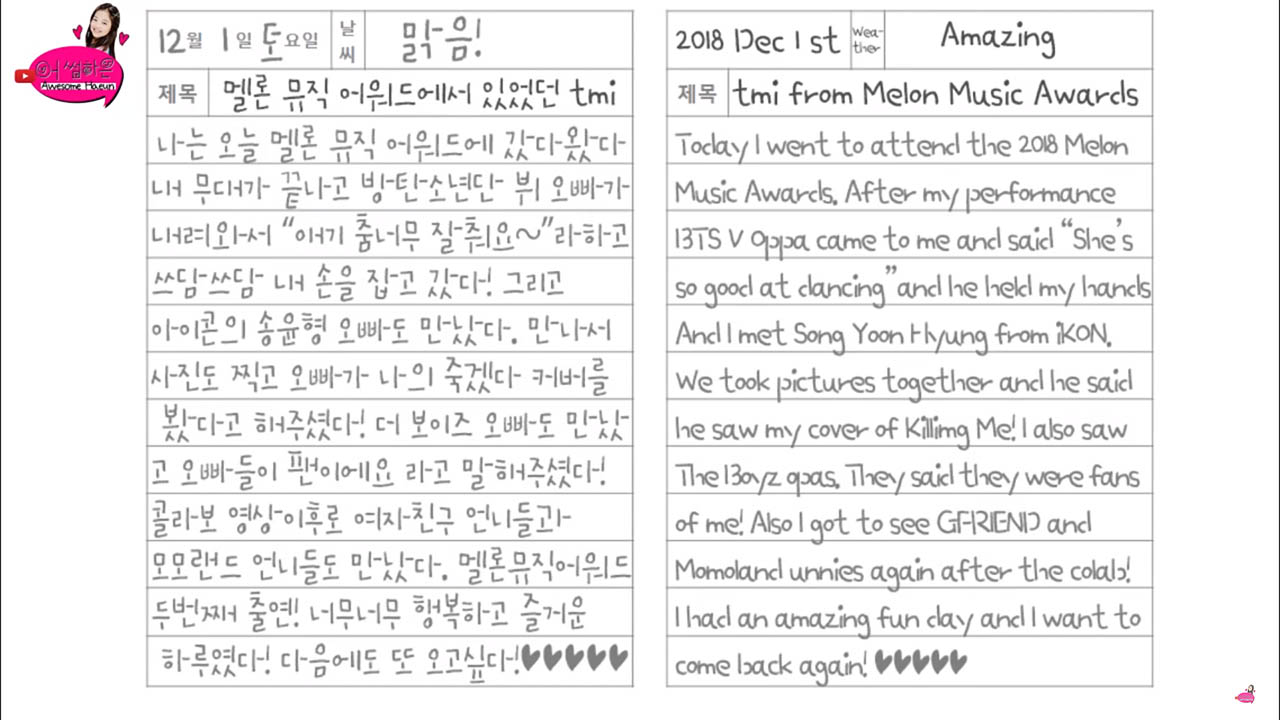 어썸하은
Awesome Haeun
12월 1일 토요일 날씨 맑음!
제목 멜론 뮤직 어워드에서 있었던 tmi
나는 오늘 멜론 뮤직 어워드에 갔다왔다
내 무대가 끝나고 방탄소년단 뷔 오빠가
내려와서 "애기 춤너무 잘춰요~"라하고
쓰담쓰담 내 손을 잡고 갔다! 그리고
아이콘의 송윤형 오빠도 만났다. 만나서
사진도 찍고 오빠가 나의 죽겠다 커버를
봤다고 해주셨다! 더 보이즈 오빠도 만났
고 오빠들이 팬이에요 라고 말해주셨다!
콜라보 영상이후로 여자친구 언니들과
모모랜드 언니들도 만났다. 멜론뮤직어워드
두번째 출연! 너무너무 행복하고 즐거운
하루였다! 다음에도 또 오고싶다!♥♥♥♥♥
2018 Dec 1 st Wea-ther Amazing
제목 tmi from Melon Music Awards
Today I went to attend the 2018 Melon
Music Awards. After my performance
BTS V Oppa came to me and said "She's
so good at dancing" and he held my hands
And I met Song Yoon Hyung from iKON.
We took pictures together and he said
he saw my cover of Killimg Me! I also saw
The Boyz opas. They said they were fans
of me! Also I got to see GFRIEND and
Momoland unnies again after the colab!
I had an amazing fun day and I want to
come back again! ♥♥♥♥♥